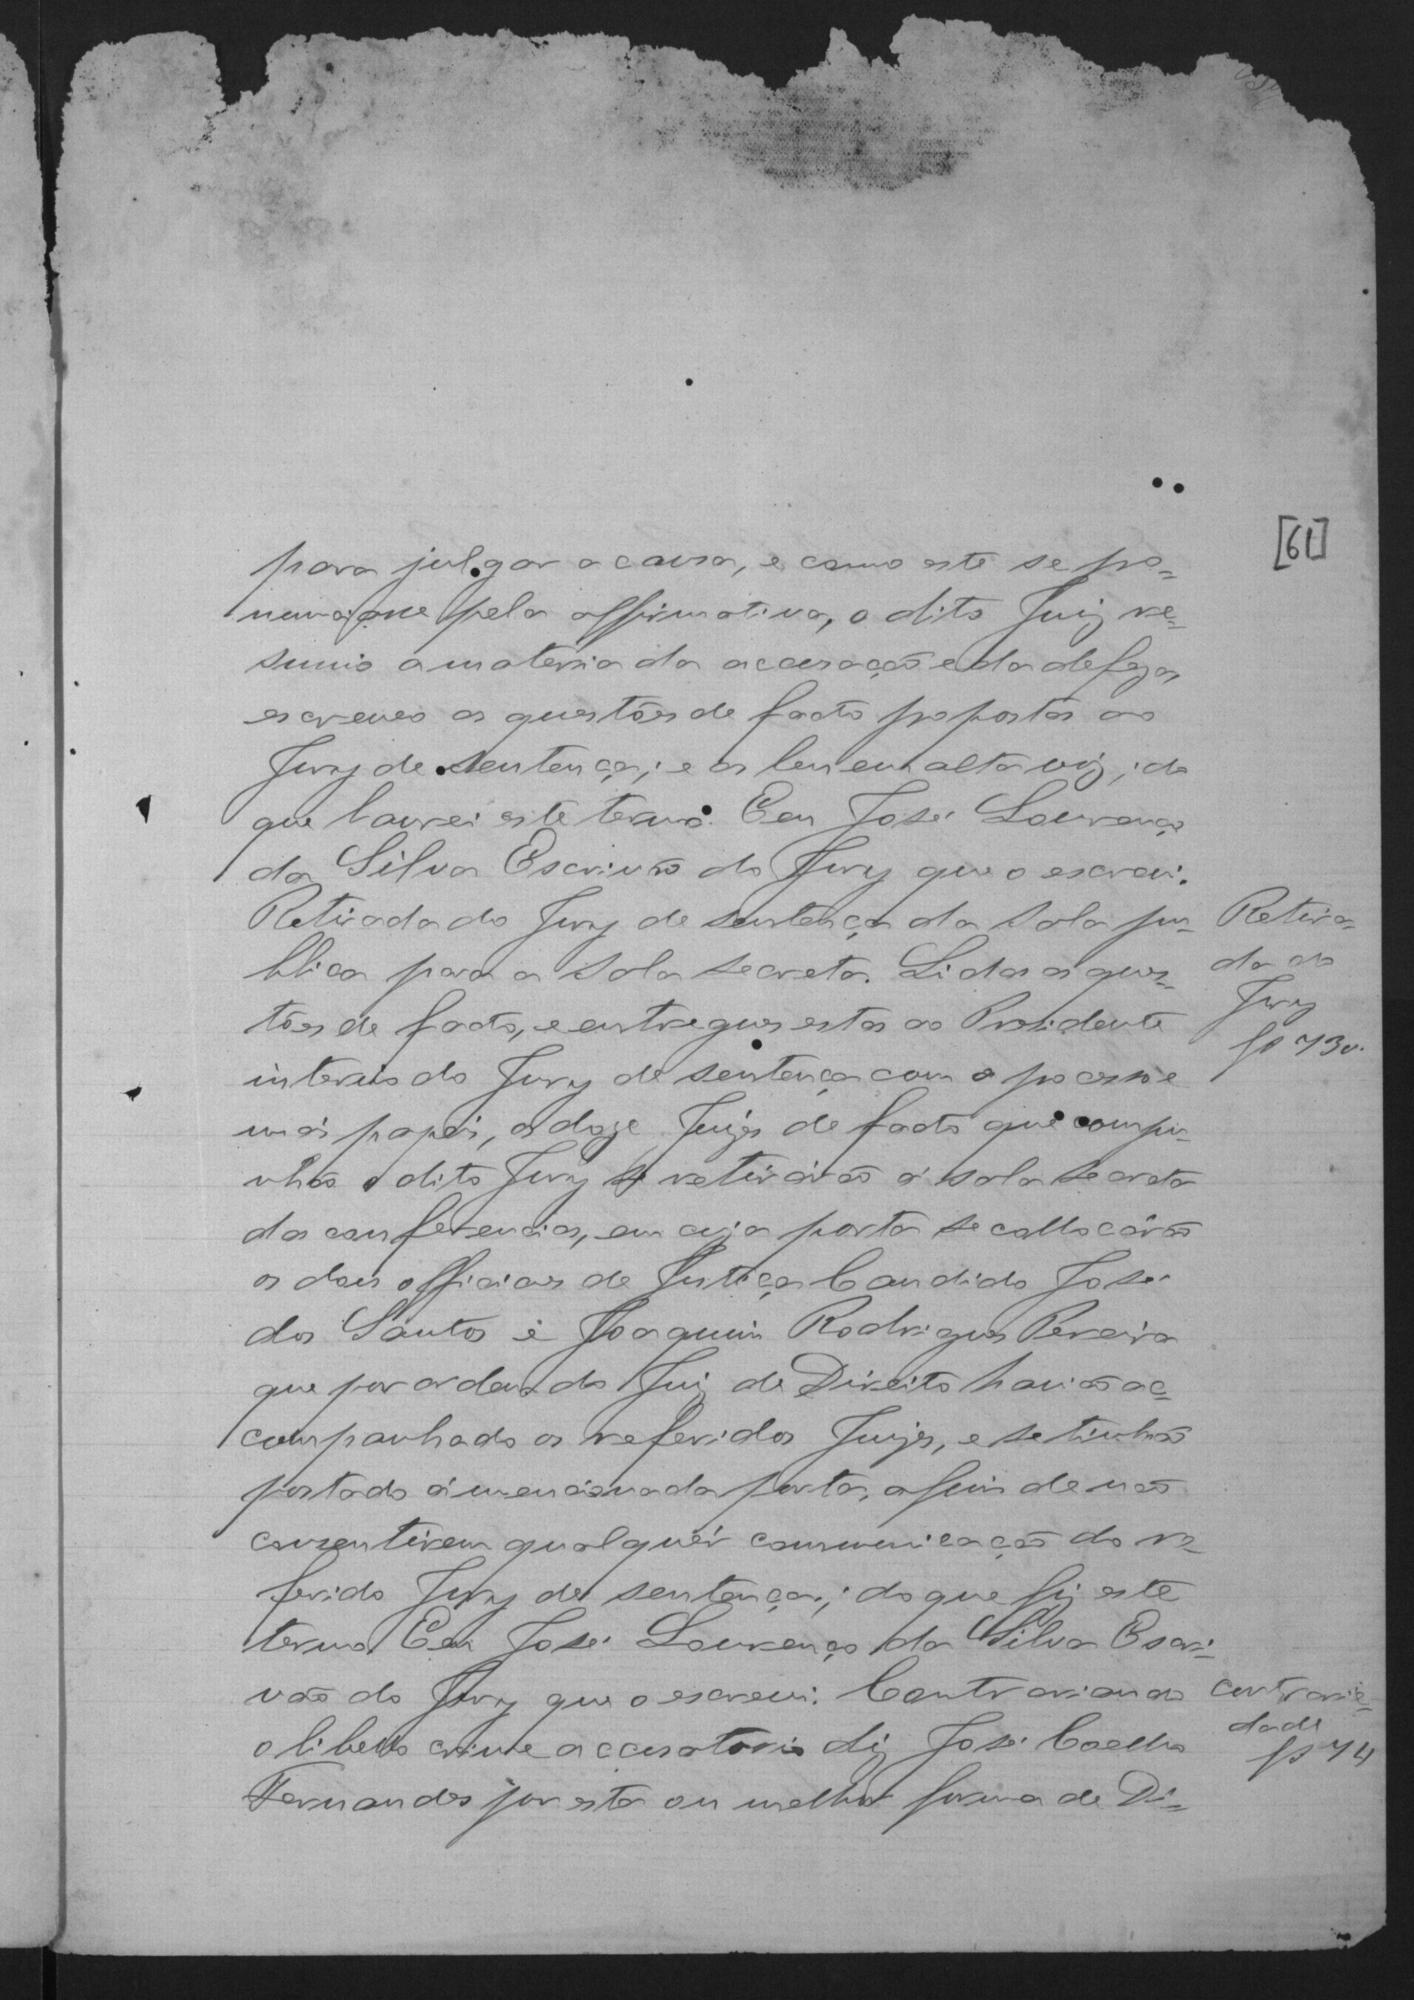 [61]
para julgar a causa, e como este se pro-
nunciasse pela affirmativa, o dito Juiz re-
sumio a materia da accusação e da defeza,
escreveo as questões de facto propostas ao
Jury de sentença; e as leu em alta voz; do
que lavrei este termo. Eu José Lourenço
da Silva Escrivão do Jury que o escrevi.
Retirada do Jury de sentença da sala pu-
blica para a sala secreta. Lidas as ques-
tões de facto, e entregues estas ao Presidente
interino do Jury de sentença com o processo e
mais papeis, os doze Juizes de facto que compu-
nhão o dito Jury se retirárão á sala secreta
das conferencias, em cuja porta se collocárão
os dous officiaes de Justiça Candido José
dos Santos e Joaquim Rodrigues Pereira
que por ordem do Juiz de Direito havião ac-
companhado os referidos Juizes, e se tinhão
postado á mencionada porta, afim de não
consentirem qualquér communicação do re-
ferido Jury de sentença; do que fiz este
termo. Eu José Lourenço da Silva Escri-
vão do Jury que o escrevi. Contrariando
o libello crime accusatorio diz José Coelho
Fernandes por esta ou melhor forma de Di-
Retira-
da do
Jury
fs 73v.
contrarie-
dade
fs 74